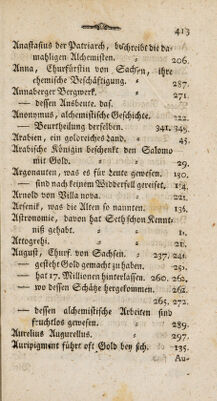 413
Anastasius der Patriarch, beschreibt die da-
mahligen Alchemisten. 206.
Anna, Churfürstin von Sachsen, ihre
chemische Beschäftigung. 287.
Annaberger Bergwerk. 271.
— dessen Ausbeute. das.
Anonymus, alchemistische Geschichte. 222.
— Beurtheilung derselben. 341. 345.
Arabien, ein goldreiches Land. 28.
Arabische Königin beschenkt den Salomo
mit Gold. 29.
Argonauten, was es für heute gewesen. 130.
— sind nach keinem Widderfell gereiset. 114.
Arnold von Villa nova. 221.
Arsenik, was die Alten so nannten. 136.
Astronomie, davon hat Seth schon Kennt-
niß gehabt. 1.
Attogrehi. 21.
August, Churf. von Sachsen. 237. 241.
— gesteht Gold gemacht zu haben. 25.
— hat 17. Millionen hinterlassen. 260. 262.
— wo dessen Schätze hergekommen 262.
265. 272.
— dessen alchemistische Arbeiten sind
fruchtlos gewesen. 289.
Aurelius Augurellus. 297.
Auripigment führt oft Gold bey sich. 135.
Au-